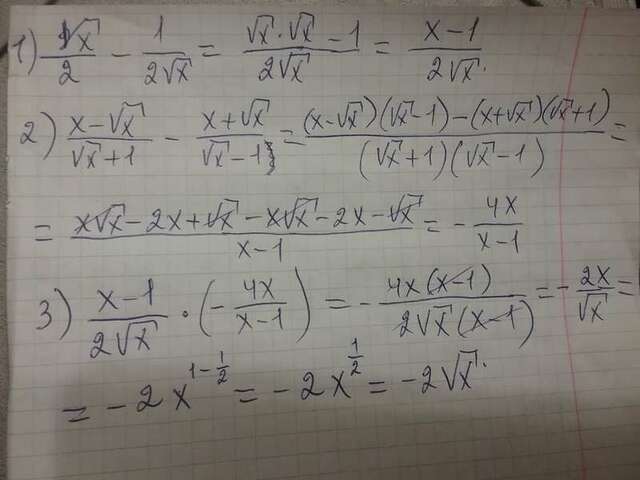 1) √x/2 - 1/(2√x) = (√x·√x - 1)/(2√x) = (x-1)/(2√x).
2) (x-√x)/(√x+1) - (x+√x)/(√x-1) = ((x-√x)(√x-1)-(x+√x)(√x+1))/((√x+1)(√x-1)) =
= (x√x-2x+√x-x√x-2x-√x)/(x-1) = - 4x/(x-1)
3) (x-1)/(2√x) · (- 4x/(x-1)) = - (4x(x-1))/(2√x(x-1)) = - 2x/√x =
= -2x^(1-1/2) = -2x^(1/2) = -2√x.